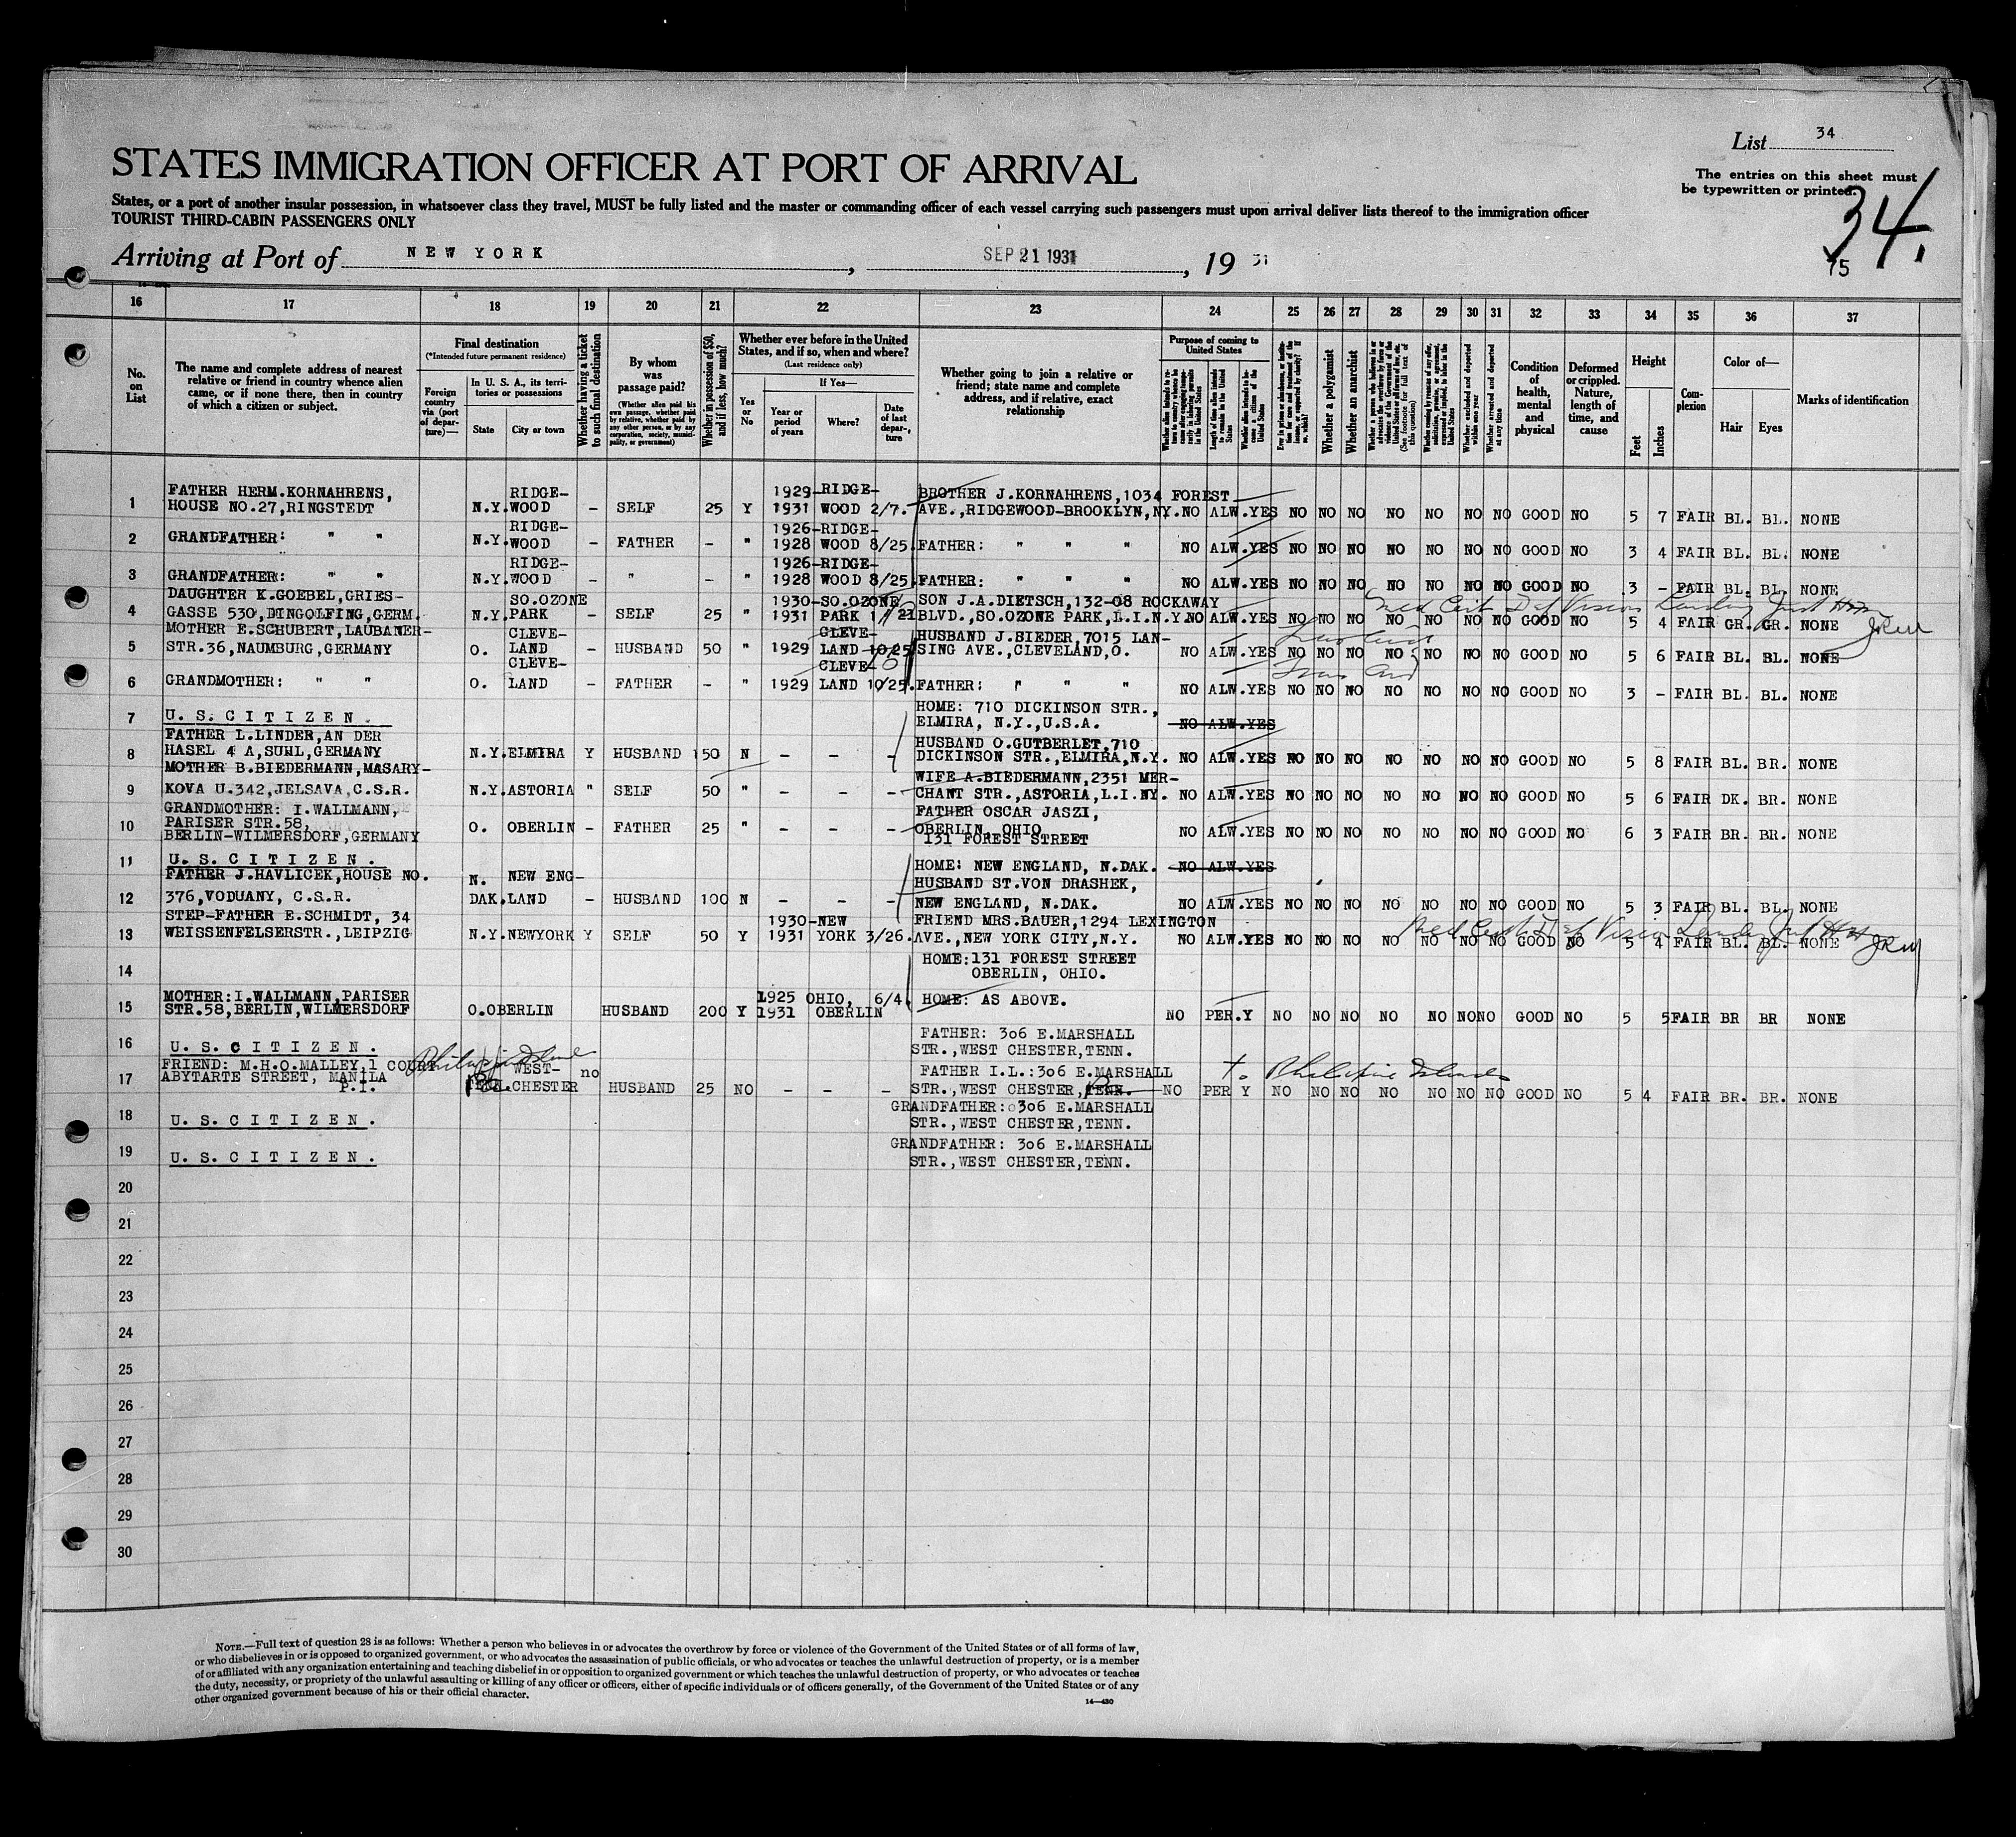 List 34
STATES IMMIGRATION OFFICER AT PORT OF ARRIVAL
The entries on this sheet must
be typewritten or printed.
States, or a port of another insular possession, in whatsoever class they travel, MUST be fully listed and the master or commanding officer of each vessel carrying such passengers must upon arrival deliver lists thereof to the immigration officer
TOURIST THIRD-CABIN PASSENGERS ONLY
34.
Arriving at Port of NEW YORK, SEP 21 1931, 19 31
75
16 17 18 19 20 21 22 23 24 25 26 27 28 29 30 31 32 33 34 35 36 37
No. on List
The name and complete address of nearest
relative or friend in country whence alien
came, or if none there, then in country
of which a citizen or subject.
Final destination
(*Intended future permanent residence)
Foreign country via (port of departure)—
In U. S. A., its territories or possessions
State
City or town
Whether having a ticket to such final destination
By whom was passage paid?
(Whether alien paid his own passage, whether paid by relative, whether paid by any other person, or by any corporation, society, municipality, or government)
Whether in possession of $50, and if less, how much?
Whether ever before in the United States, and if so, when and where?
(Last residence only)
Yes or No
If Yes—
Year or period of years
Where?
Date of last departure
Whether going to join a relative or
friend; state name and complete
address, and if relative, exact
relationship
Purpose of coming to United States
Length of time alien intends to remain in the United States
Whether alien intends to become a citizen of the United States
Whether a polygamist
Whether an anarchist
(See footnote for full text of this question)
Whether excluded and deported within one year
Whether arrested and deported at any time
Condition of health, mental and physical
Deformed or crippled. Nature, length of time, and cause
Height
Feet
Inches
Complexion
Color of—
Hair
Eyes
Marks of identification
1 FATHER HERM.KORNAHRENS, HOUSE NO.27,RINGSTEDT N.Y. RIDGE-WOOD - SELF 25 Y 1929-1931 RIDGE-WOOD 2/7. BROTHER J.KORNAHRENS,1034 FOREST AVE.,RIDGEWOOD-BROOKLYN,NY. NO ALW.YES NO NO NO NO NO NO NO GOOD NO 5 7 FAIR BL. BL. NONE
2 GRANDFATHER: " " N.Y. RIDGE-WOOD - FATHER - " 1926-1928 RIDGE-WOOD 8/25. FATHER: " " " NO ALW.YES NO NO NO NO NO NO NO GOOD NO 3 4 FAIR BL. BL. NONE
3 GRANDFATHER: " " N.Y. RIDGE-WOOD - " - " 1926-1928 RIDGE-WOOD 8/25. FATHER: " " " NO ALW.YES NO NO NO NO NO NO NO GOOD NO 3 - FAIR BL. BL. NONE
4 DAUGHTER K.GOEBEL,GRIES-GASSE 530,DINGOLFING,GERM. N.Y. SO.OZONE PARK - SELF 25 " 1930-1931 SO.OZONE PARK SON J.A.DIETSCH,132-08 ROCKAWAY BLVD.,SO.OZONE PARK,L.I.N.Y. NO ALW.YES NO NO NO NO NO NO NO GOOD NO 5 4 FAIR GR. GR. NONE
5 MOTHER E.SCHUBERT,LAUBANER-STR.36,NAUMBURG,GERMANY O. CLEVE-LAND - HUSBAND 50 " 1929 CLEVE-LAND 10/25 HUSBAND J.BIEDER,7015 LAN-SING AVE.,CLEVELAND,O. NO ALW.YES NO NO NO NO NO NO NO GOOD NO 5 6 FAIR BL. BL. NONE
6 GRANDMOTHER: " " O. CLEVE-LAND - FATHER - " 1929 CLEVE-LAND 10/25. FATHER: " " " NO ALW.YES NO NO NO NO NO NO NO GOOD NO 3 - FAIR BL. BL. NONE
7 U.S.CITIZEN. HOME: 710 DICKINSON STR., ELMIRA, N.Y.,U.S.A. NO ALW.YES
8 FATHER L.LINDER,AN DER HASEL 4 A,SUHL,GERMANY N.Y. ELMIRA Y HUSBAND 150 N - - - HUSBAND O.GUTBERLET,710 DICKINSON STR.,ELMIRA,N.Y. NO ALW.YES NO NO NO NO NO NO NO GOOD NO 5 8 FAIR BL. BR. NONE
9 MOTHER B.BIEDERMANN,MASARY-KOVA U.342,JELSAVA,C.S.R. N.Y. ASTORIA " SELF 50 " - - - WIFE A.BIEDERMANN,2351 MER-CHANT STR.,ASTORIA,L.I.NY. NO ALW.YES NO NO NO NO NO NO NO GOOD NO 5 6 FAIR DK. BR. NONE
10 GRANDMOTHER: I.WALLMANN, PARISER STR.58, BERLIN-WILMERSDORF,GERMANY O. OBERLIN - FATHER 25 " - - - FATHER OSCAR JASZI, OBERLIN, OHIO 131 FOREST STREET NO ALW.YES NO NO NO NO NO NO NO GOOD NO 6 3 FAIR BR. BR. NONE
11 U.S.CITIZEN. HOME: NEW ENGLAND, N.DAK. NO ALW.YES
12 FATHER J.HAVLICEK,HOUSE NO. 376,VODUANY, C.S.R. N. DAK. NEW ENG-LAND - HUSBAND 100 N - - - HUSBAND ST.VON DRASHEK, NEW ENGLAND, N.DAK. NO ALW.YES NO NO NO NO NO NO NO GOOD NO 5 3 FAIR BL. BL. NONE
13 STEP-FATHER E.SCHMIDT, 34 WEISSENFELSERSTR.,LEIPZIG N.Y. NEWYORK Y SELF 50 Y 1930-1931 NEW YORK 3/26. FRIEND MRS.BAUER,1294 LEXINGTON AVE.,NEW YORK CITY,N.Y. NO ALW.YES NO NO NO NO NO NO NO GOOD NO 5 4 FAIR BL. BL. NONE
14 HOME:131 FOREST STREET OBERLIN, OHIO.
15 MOTHER:I.WALLMANN,PARISER STR.58,BERLIN,WILMERSDORF O.OBERLIN HUSBAND 200 Y 1925 1931 OHIO, OBERLIN 6/4 HOME: AS ABOVE. NO PER.Y NO NO NO NO NO NO NO GOOD NO 5 5 FAIR BR BR NONE
16 U.S.CITIZEN. FATHER: 306 E.MARSHALL STR.,WEST CHESTER,TENN.
17 FRIEND: M.H.O.MALLEY,1 COURT ABYTARTE STREET, MANILA P.I. WEST-CHESTER no HUSBAND 25 NO - - - FATHER I.L.:306 E.MARSHALL STR.,WEST CHESTER,TENN. to Philippine Islands NO PER Y NO NO NO NO NO NO NO GOOD NO 5 4 FAIR BR. BR. NONE
18 U.S.CITIZEN. GRANDFATHER: 306 E.MARSHALL STR.,WEST CHESTER,TENN.
19 U.S.CITIZEN. GRANDFATHER: 306 E.MARSHALL STR.,WEST CHESTER,TENN.
20
21
22
23
24
25
26
27
28
29
30
NOTE.—Full text of question 28 is as follows: Whether a person who believes in or advocates the overthrow by force or violence of the Government of the United States or of all forms of law,
or who disbelieves in or is opposed to organized government, or who advocates the assassination of public officials, or who advocates or teaches the unlawful destruction of property, or is a member
of or affiliated with any organization entertaining and teaching disbelief in or opposition to organized government or which teaches the unlawful destruction of property, or who advocates or teaches
the duty, necessity, or propriety of the unlawful assaulting or killing of any officer or officers, either of specific individuals or of officers generally, of the Government of the United States or of any
other organized government because of his or their official character.
14—430